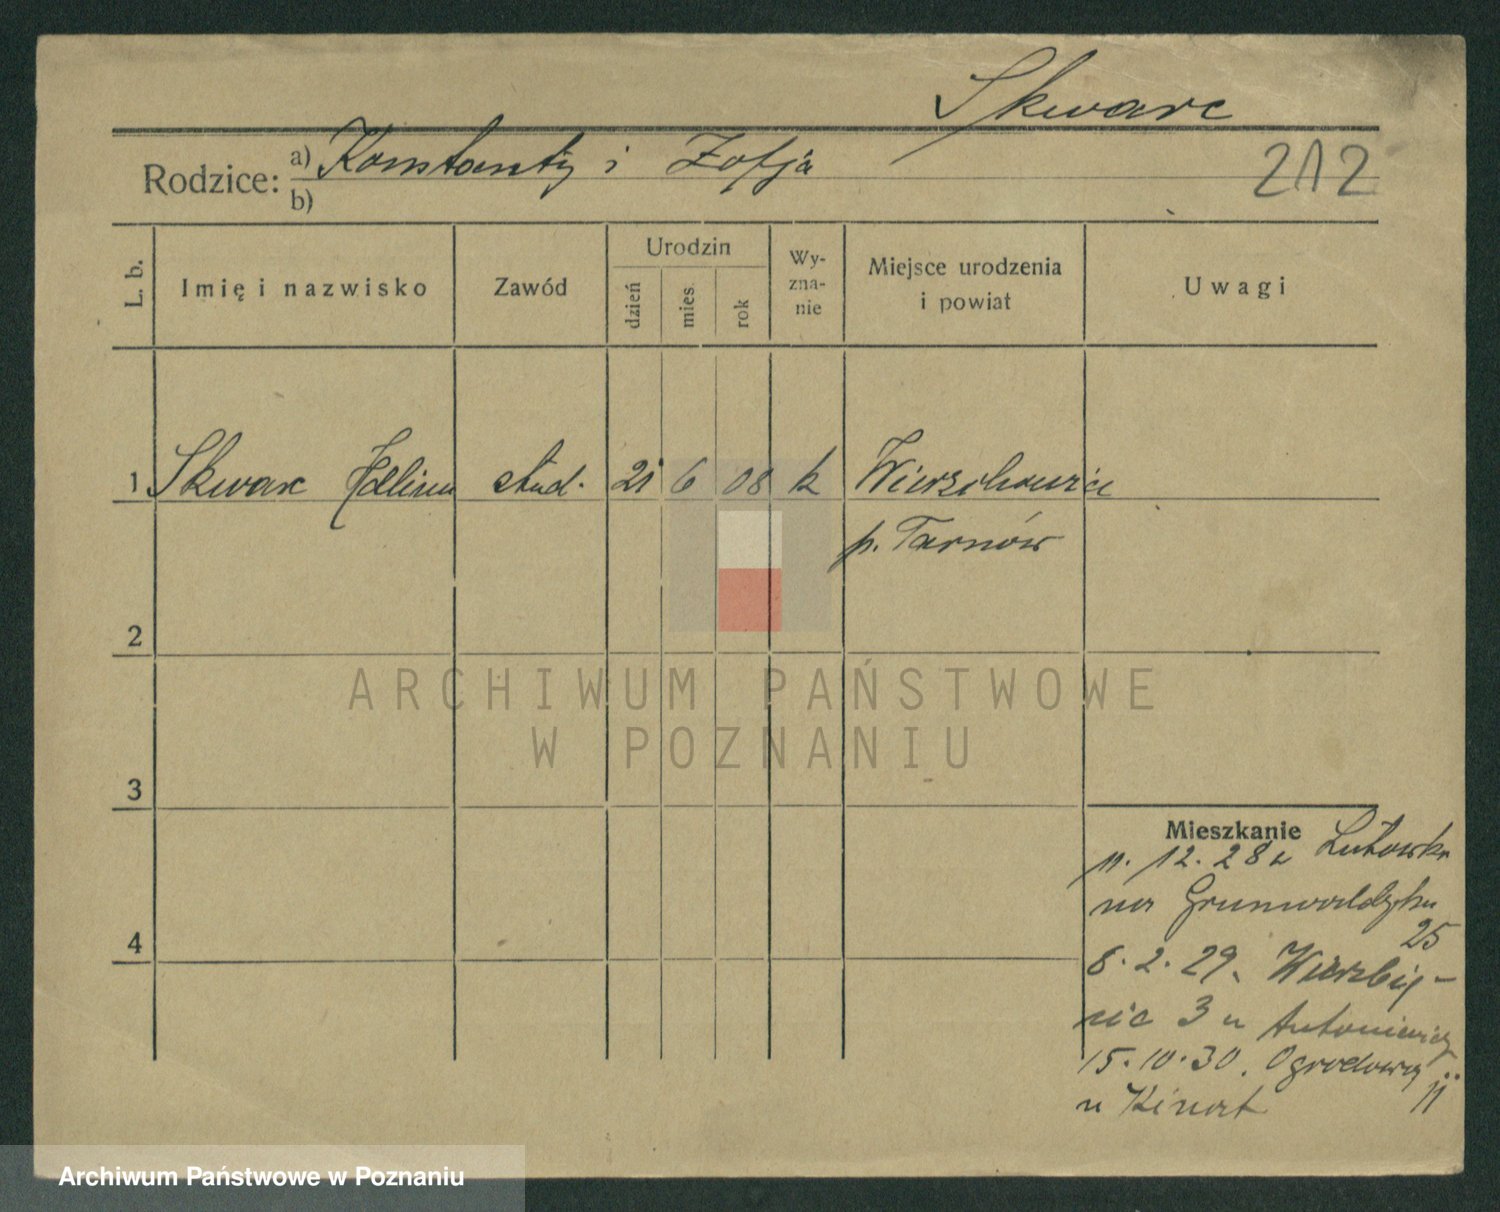 Skwarc
Rodzice: a) Konstanty i Zofja
b)
212
L. b.
Imię i nazwisko
Zawód
Urodzin
dzień
mies.
rok
Wy-
zna-
nie
Miejsce urodzenia
i powiat
Uwagi
1 Skwarc stud. 21 6 08 k
p. Tarnów
2
3
4
ARCHIWUM PAŃSTWOWE
W POZNANIU
Mieszkanie
11. 12. 28 u
na
25
8. 2. 29.
3 u
15.10.30. Ogrodowa
11
u
Archiwum Państwowe w Poznaniu